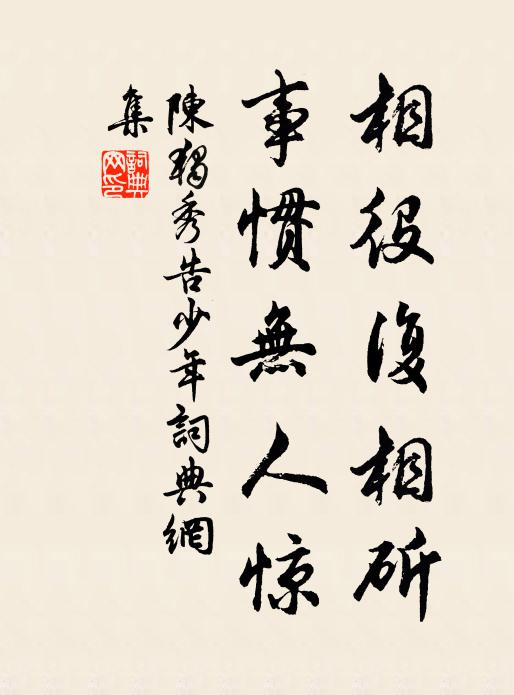 相役復相斫
事慣無人惊
陳獨秀告少年詞典網
集
詞典
网印